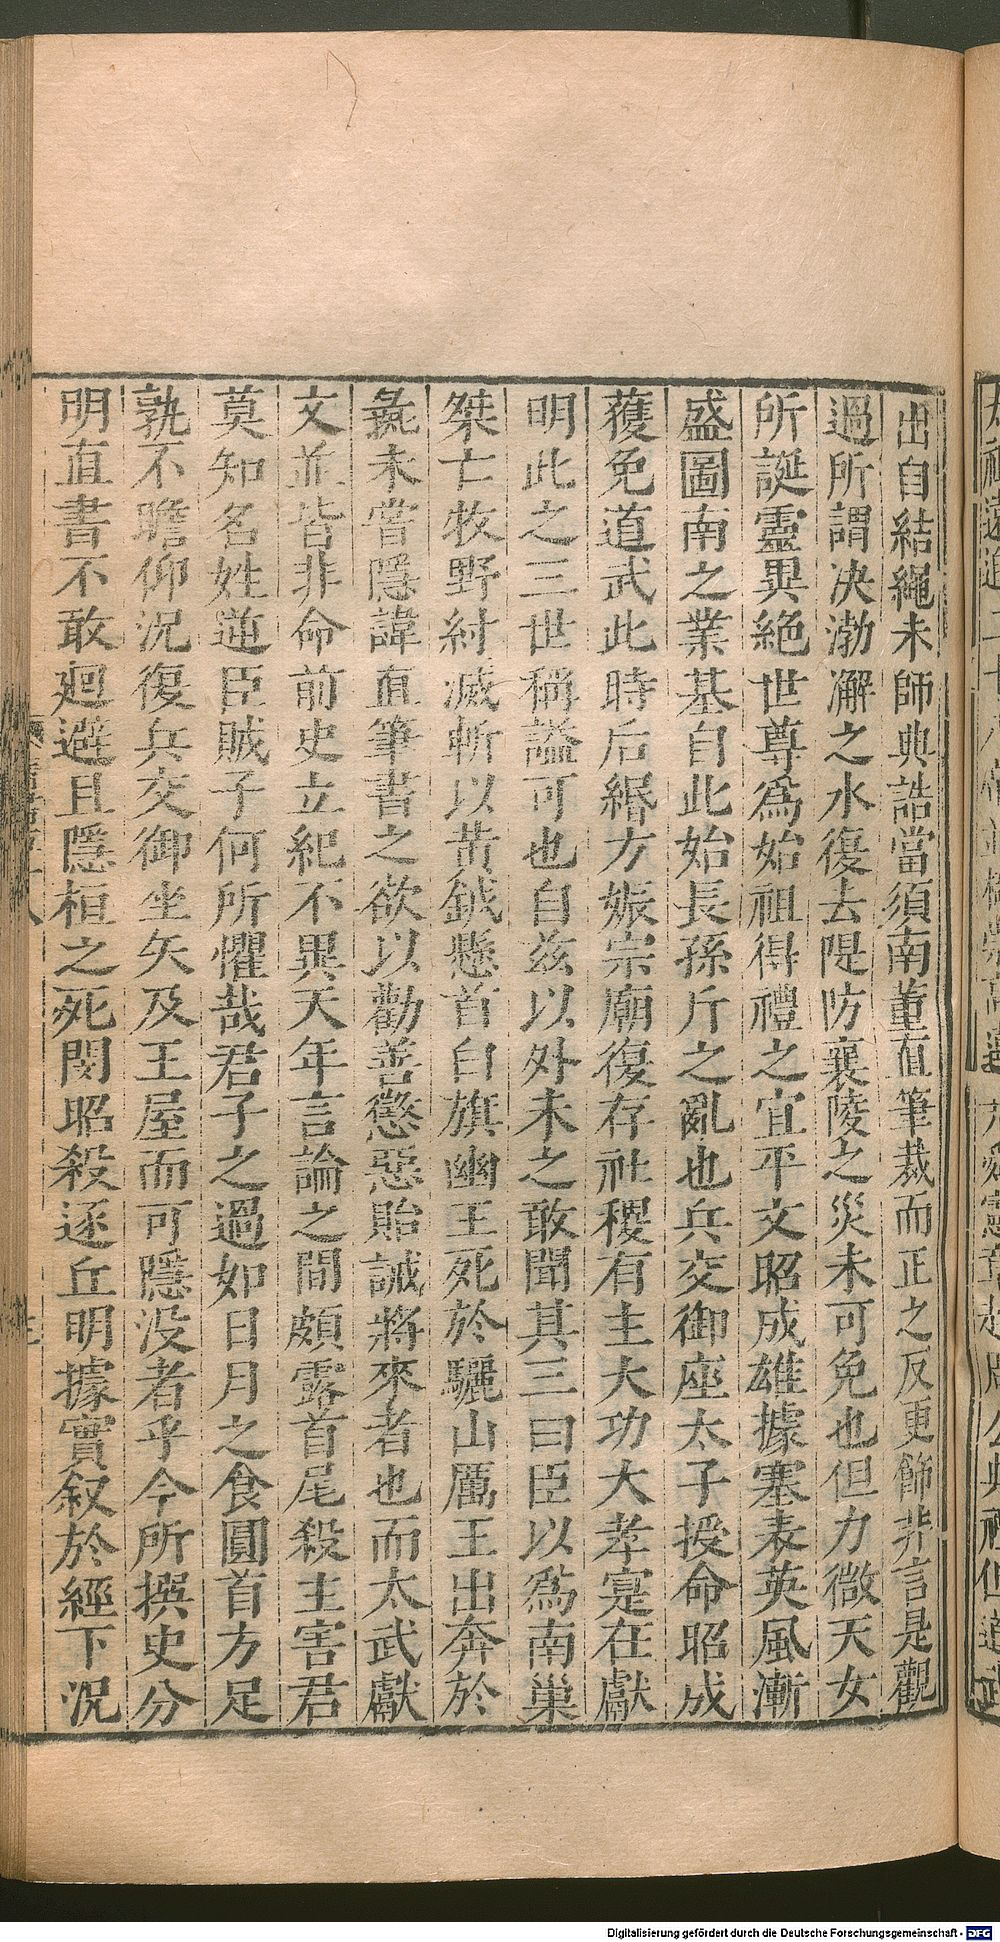 出自結繩未師典誥當須南董直筆裁而正之反更飾非言是觀
過所謂決渤澥之水復去隄防襄陵之災未可免也但力微天女
所誕靈異絕世尊爲始祖得禮之宜平文昭成雄據塞表英風漸
盛圖南之業基自此始長孫斤之亂也兵交御座太子授命昭成
獲免道武此時后緡方娠宗廟復存社稷有主大功大孝寔在獻
明此之三世稱謚可也自茲以外未之敢聞其三曰臣以爲南巢
桀亡牧野紂滅斬以黃鉞懸首白旗幽王死於驪山厲王出奔於
彘未嘗隱諱直筆書之欲以勸善懲惡貽誡將來者也而太武獻
文並皆非命前史立紀不異天年言論之間頗露首尾殺主害君
莫知名姓逆臣賊子何所懼哉君子之過如日月之食圓首方足
孰不瞻仰況復兵交御坐矢及王屋而可隱没者乎今所撰史分
明直書不敢迴避且隱桓之死閔昭殺逐丘明據實叙於經下況
Digitalisierung gefördert durch die Deutsche Forschungsgemeinschaft - DFG